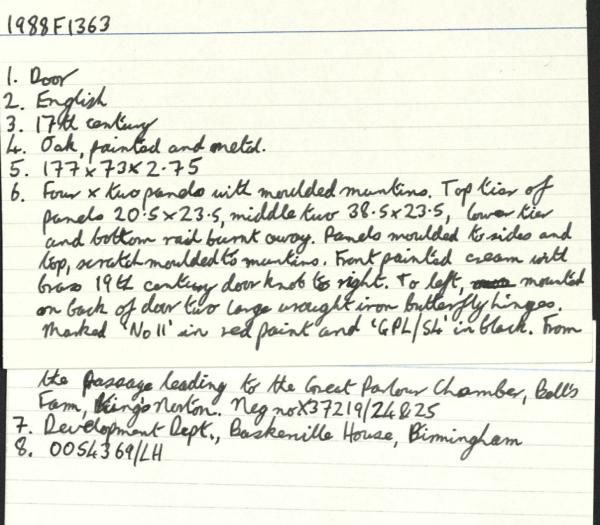 1988F1363
1. Door
2. English
3. 17th century
4. Oak, painted and metal.
5. 177 x 73 x 2.75
6. Four x two panels with moulded muntins. Top tier of
panels 20.5 x 23.5, middle two 38.5 x 23.5, lower tier
and bottom rail burnt away. Panels moulded to sides and
top, scratch moulded to muntins. Front painted cream with
brass 19th century door knob to right. To left, mounted
on back of door two large wrought iron butterfly hinges.
Marked 'No 11' in red paint and 'GPL/S4' in black. From
the passage leading to the Great Parlour Chamber, Bell's
Farm, King's Norton. Neg no X37219/24&25
7. Development Dept., Baskerville House, Birmingham
8. 0054369/LH